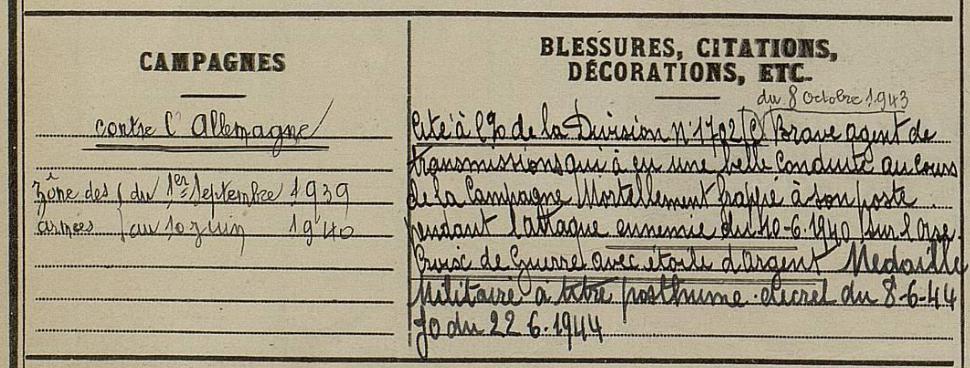 CAMPAGNES
contre l'Allemagne
Zône des ( du 1er Septembre 1939
armées ( au 10 juin 1940
BLESSURES, CITATIONS,
DÉCORATIONS, ETC.
du 8 Octobre 1943
Cité à l'O de la Division N° 1792 (C) Brave agent de
transmissions qui à eu une belle conduite au cours
de la Campagne Mortellement frappé à son poste
pendant l'attaque ennemie du 10-6.1940 sur l'Oise
Croix de Guerre avec étoile d'argent Medaille
Militaire à titre posthume. décret du 8-6-44
JO du 22 6.1944